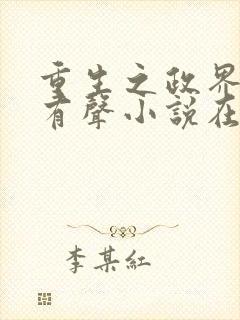 重生之政界
有聲小說在
李某紅